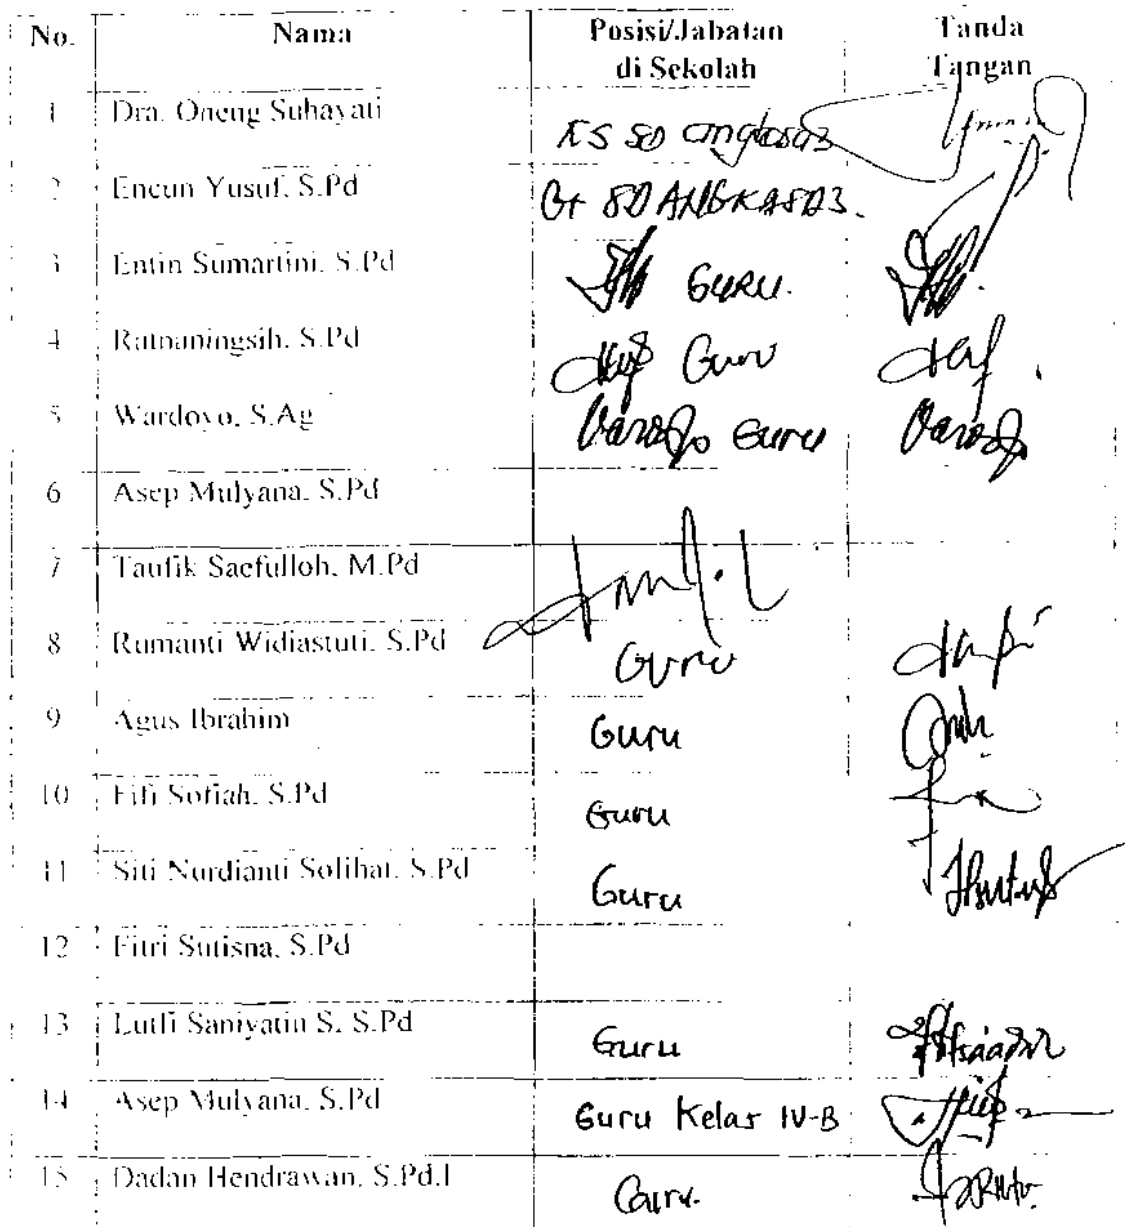 No. Nama Posisi/Jabatan di Sekolah Tanda Tangan
1 Dra. Oneng Suhayati KS SD Angkasa3
2 Encun Yusuf, S.Pd Gr SD ANGKASA3.
3 Entin Sumartini, S.Pd GURU.
4 Ratnaningsih, S.Pd Guru
5 Wardoyo, S.Ag Guru
6 Asep Mulyana, S.Pd
7 Taufik Saefulloh, M.Pd
8 Rumanti Widiastuti, S.Pd Guru
9 Agus Ibrahim Guru
10 Fifi Sofiah, S.Pd Guru
11 Siti Nurdianti Solihat, S.Pd Guru
12 Fitri Sutisna, S.Pd
13 Lutfi Saniyatin S, S.Pd Guru
14 Asep Mulyana, S.Pd Guru Kelas IV-B
15 Dadan Hendrawan, S.Pd.I Guru.